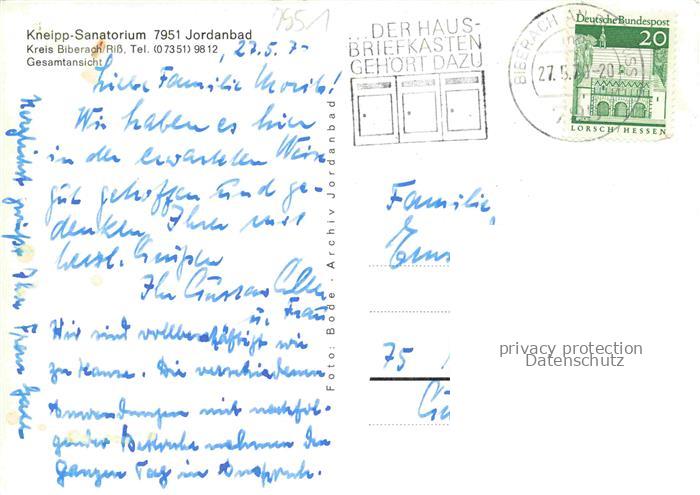 7951
Kneipp-Sanatorium 7951 Jordanbad
Kreis Biberach/Riß, Tel. (07351) 9812
Gesamtansicht
27.5.7
Liebe Familie
Wir haben es hier
in der erwarteten Weise
gut getroffen und ge-
denken Ihrer mit
herzl. Grüßen
Ihr Gustav
u. Frau
Wir sind vollbeschäftigt wie
zu Hause. Die verschiedenen
Anwendungen mit nachfol-
gender Bettruhe nehmen den
ganzen Tag in Anspruch.
Herzlichst grüßt Ihr
Foto: Bode - Archiv Jordanbad
...DER HAUS-
BRIEFKASTEN
GEHÖRT DAZU
BIBERACH AN
27.5.7 -20
Deutsche Bundespost
20
LORSCH/HESSEN
Familie
75
privacy protection
Datenschutz